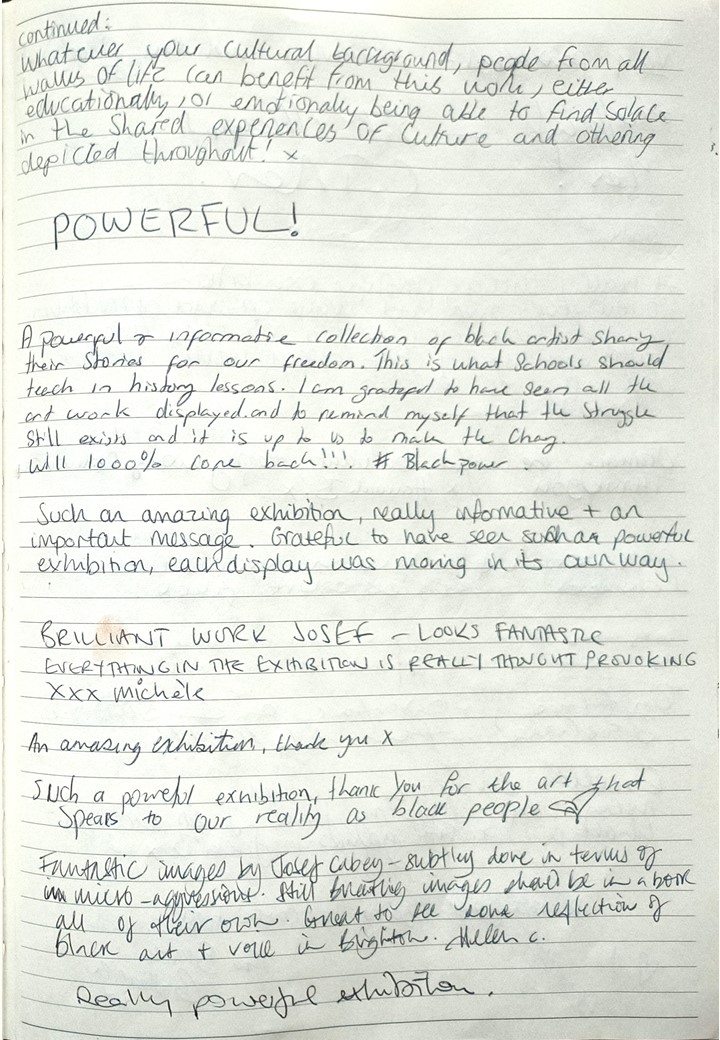 continued:
Whatever your cultural background, people from all
walks of life can benefit from this work, either
educationally, or emotionally being able to find solace
in the shared experiences of culture and othering
depicted throughout! x
POWERFUL!
A powerful & informative collection of black artist sharing
their stories for our freedom. This is what schools should
teach in history lessons. I am grateful to have seen all the
art work displayed.and to remind myself that the struggle
still exists and it is up to us to make the chang.
Will 1000% come back!!!. # Blackpower.
Such an amazing exhibition, really informative + an
important message. Grateful to have seen such an powerful
exhibition, each display was moving in its own way.
BRILLIANT WORK JOSEF - LOOKS FANTASTIC
EVERYTHING IN THE EXHIBITION IS REALLY THOUGHT PROVOKING
XXX Michèle
An amazing exhibition, thank you x
Such a powerful exhibition, thank you for the art that
Spears to our reality as black people
Fantastic images by Josef Cabey - subtley done in terms of
micro-aggressions. Still images should be in a book
all of their own. Great to see some reflection of
black art + voice in brighton. Helen C.
Really powerful exhibition.